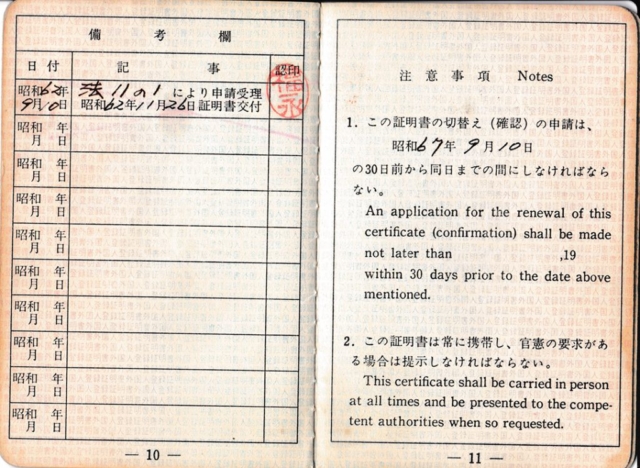 備考欄
日付 記事 認印
昭和62年 法11の1 により申請受理
9月10日 昭和62年11月26日証明書交付
昭和 年
月 日
昭和 年
月 日
昭和 年
月 日
昭和 年
月 日
昭和 年
月 日
昭和 年
月 日
昭和 年
月 日
昭和 年
月 日
昭和 年
月 日
— 10 —
注意事項 Notes
1. この証明書の切替え（確認）の申請は、
昭和67年 9月10日
の30日前から同日までの間にしなければなら
ない。
An application for the renewal of this
certificate (confirmation) shall be made
not later than ,19
within 30 days prior to the date above
mentioned.
2. この証明書は常に携帯し、官憲の要求があ
る場合は提示しなければならない。
This certificate shall be carried in person
at all times and be presented to the compe-
tent authorities when so requested.
— 11 —